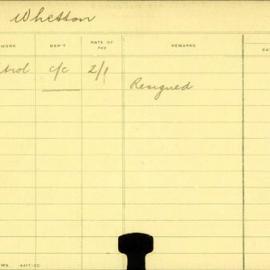 Whetton
WORK DEP'T RATE OF PAY REMARKS
trol c/c 2/1 Resigned